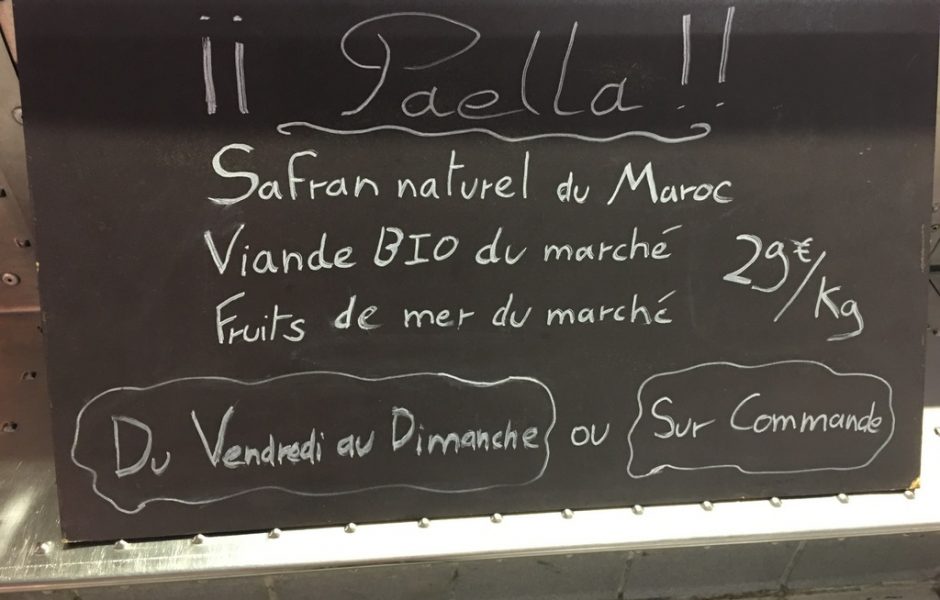 ¡¡ Paella !!
Safran naturel du Maroc
Viande BIO du marché
Fruits de mer du marché
29€/Kg
Du Vendredi au Dimanche ou Sur Commande